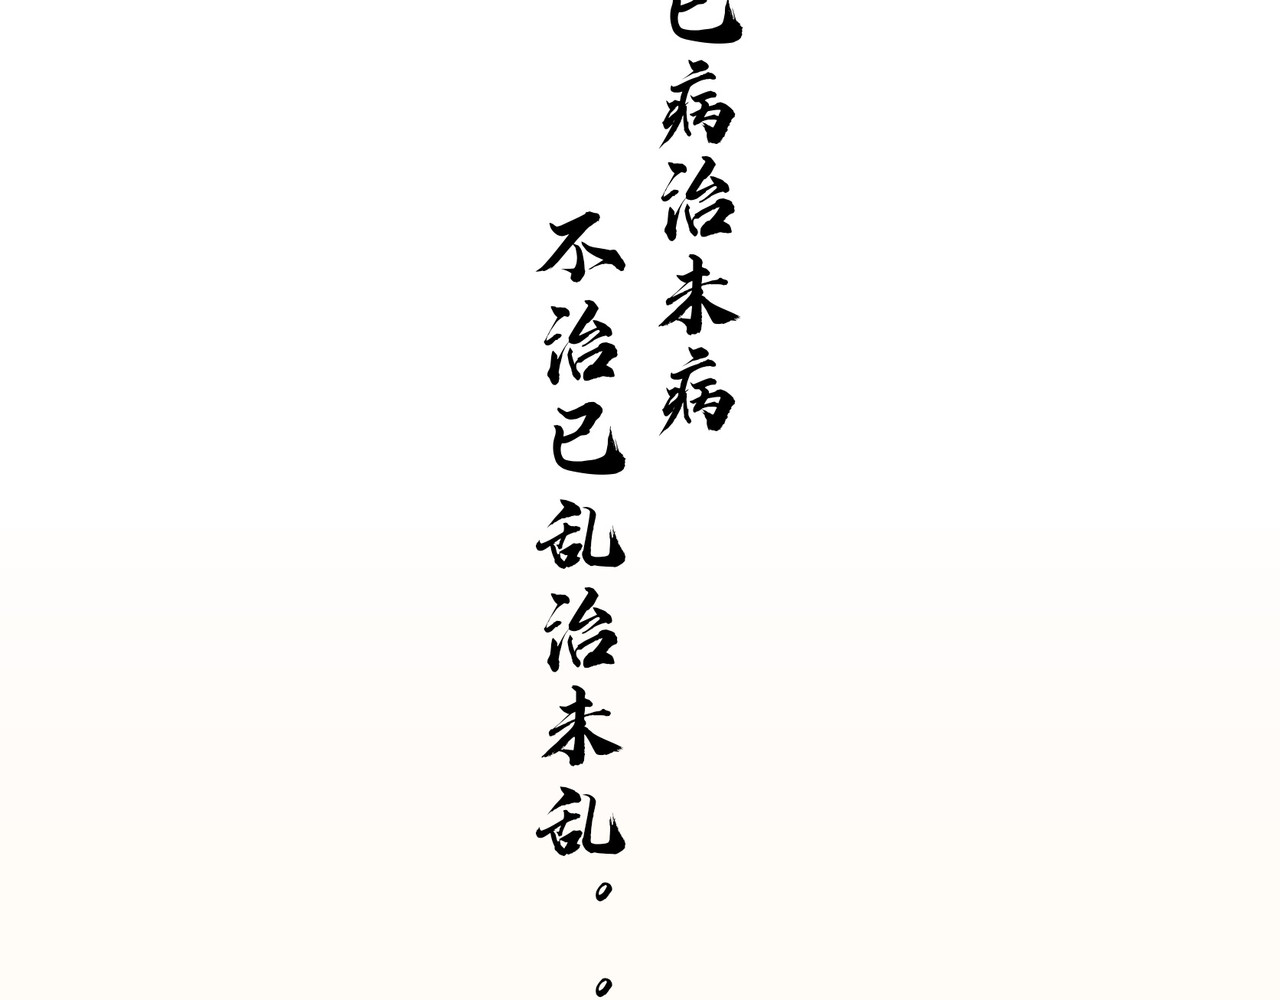 已病治未病
不治已乱治未乱。。